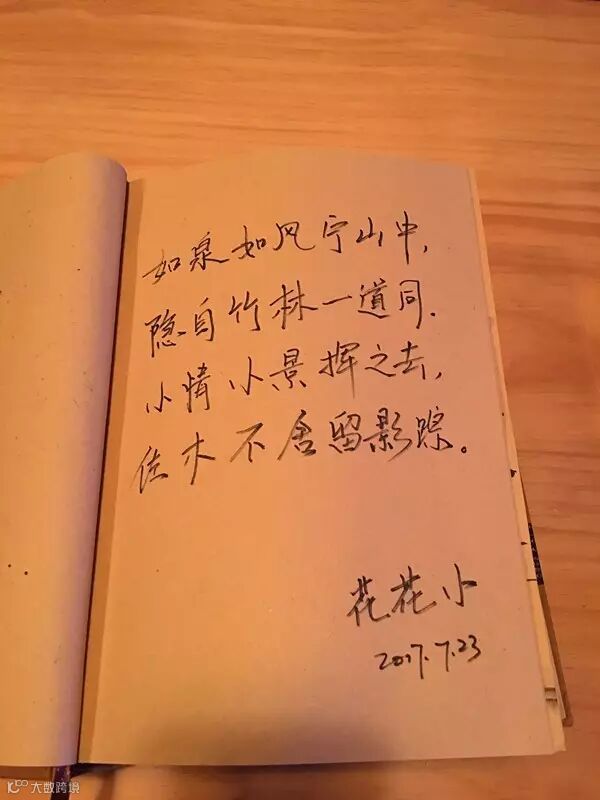 如泉如风宁山中,
隐自竹林一道同.
小情小景挥之去,
佐木不舍留影踪。
花花小
2017.7.23
大数跨境